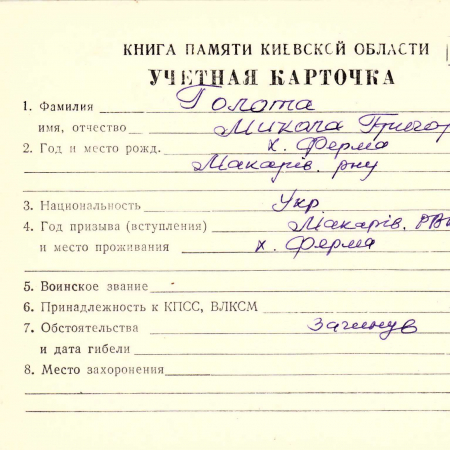 КНИГА ПАМЯТИ КИЕВСКОЙ ОБЛАСТИ
УЧЕТНАЯ КАРТОЧКА
1. Фамилия Голота
имя, отчество Микола Григор
2. Год и место рожд. х. Ферма
Макарів. р-ну
3. Национальность Укр
4. Год призыва (вступления) Макарів. РВ
и место проживания х. Ферма
5. Воинское звание
6. Принадлежность к КПСС, ВЛКСМ
7. Обстоятельства Загинув
и дата гибели
8. Место захоронения